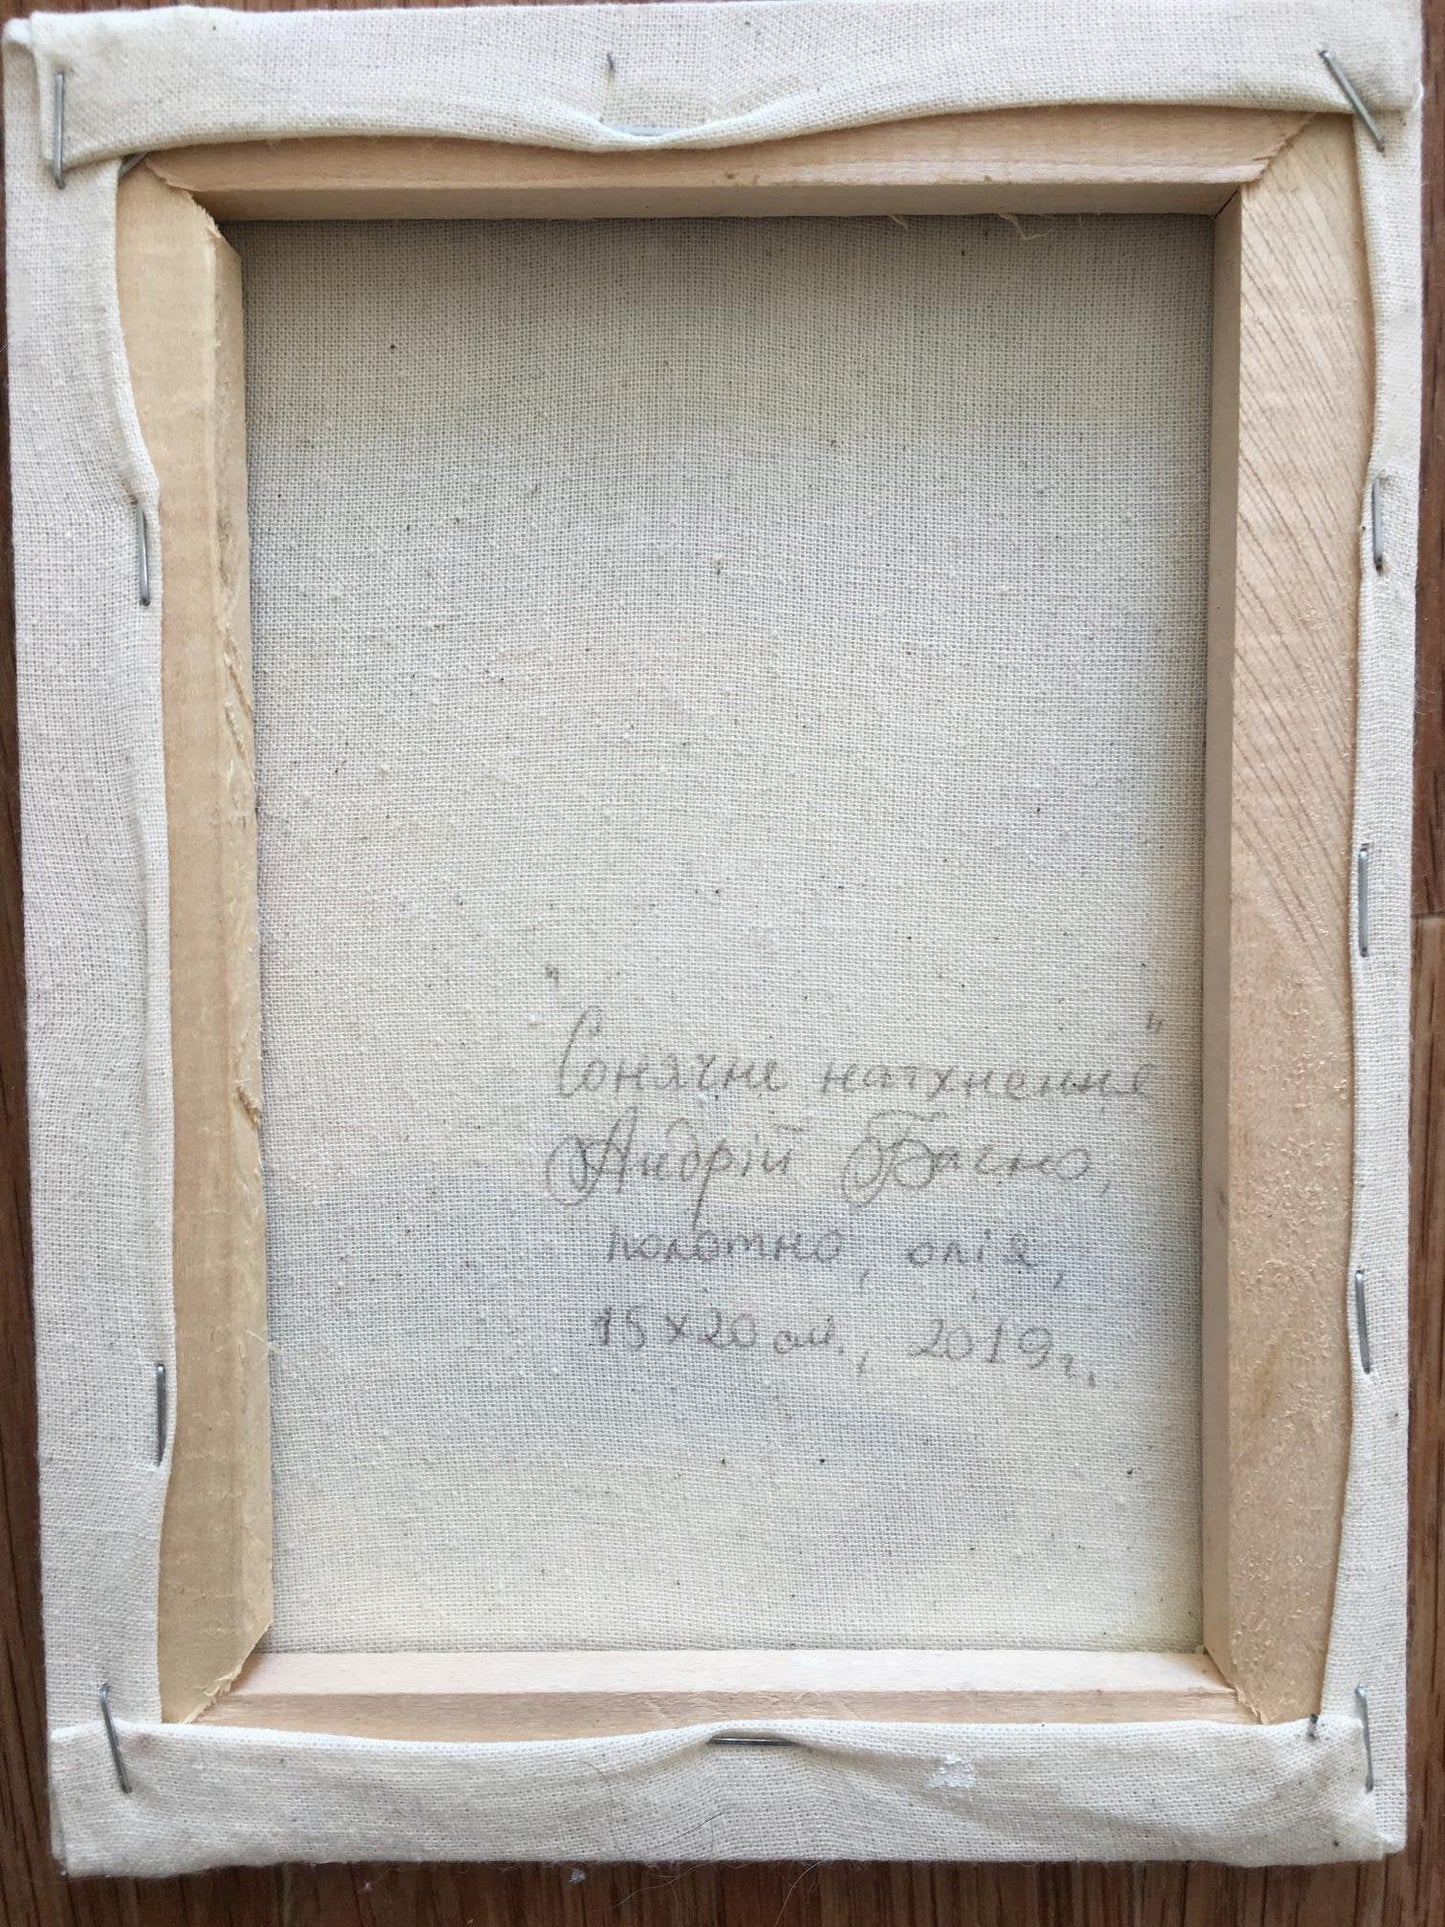 "Сонячне натхнення"
Андрій
полотно, олія,
15х20 см., 2019г.